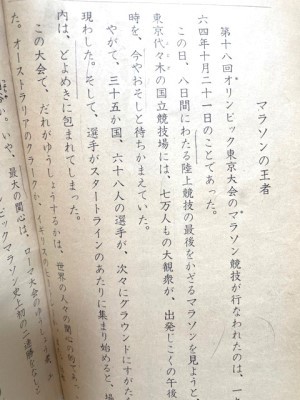 マラソンの王者
第十八回オリンピック東京大会のマラソン競技が行なわれたのは、一九
六四年十月二十一日のことであった。
この日、八日間にわたる陸上競技の最後をかざるマラソンを見ようと、
東京代々木の国立競技場には、七万人もの大観衆が、出発じこくの午後
時を、今やおそしと待ちかまえていた。
やがて、三十五か国、六十八人の選手が、次々にグラウンドにすがた
現わした。そして、選手がスタートラインのあたりに集まり始めると、場
内は、どよめきに包まれてしまった。
この大会で、だれがゆうしょうするかは、世界の人々の関心の的であっ
た。オーストラリアのクラークか、イギリスの
いや、最大の関心は、ローマ大会の
ピックマラソン史上初の二連勝